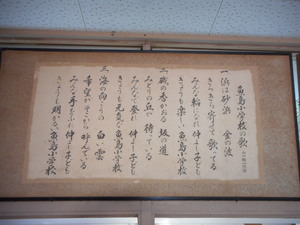 魚島小学校の歌
一 浜は砂浜 金の波
きらきら寄って歌ってる
みんな輪になれ仲よし子ども
きょうも楽しい魚島小学校
二 磯の香かおる 坂の道
みどりの丘が待っている
みんなで登れ仲よし子ども
きょうも元気な魚島小学校
三 海の向こうの 白い雲
希望がそこから呼んでいる
みんな手をふれ仲よし子ども
きょうも明かるい魚島小学校